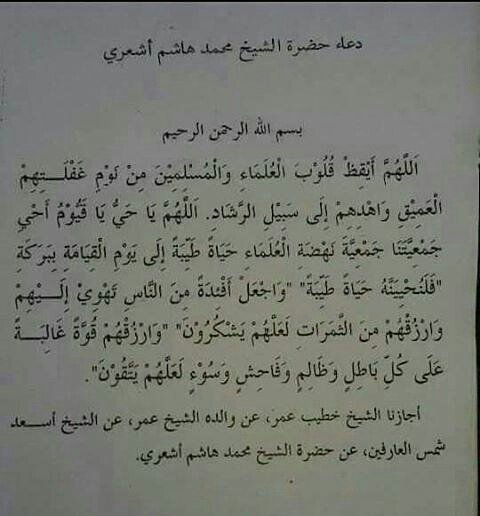 دعاء حضرة الشيخ محمد هاشم أشعري
بسم الله الرحمن الرحيم
اَللَّهُمَّ أَيْقِظْ قُلُوْبَ الْعُلَمَاءِ وَالْمُسْلِمِيْنَ مِنْ نَوْمِ غَفْلَتِهِمْ
الْعَمِيْقِ وَاهْدِهِمْ إِلَى سَبِيْلِ الرَّشَادِ. اَللَّهُمَّ يَا حَيُّ يَا قَيُّوْمُ أَحْيِ
جَمْعِيَّتَنَا جَمْعِيَّةَ نَهْضَةِ الْعُلَمَاء حَيَاةً طَيِّبَةً إِلَى يَوْمِ الْقِيَامَةِ بِبَرَكَةِ
"فَلَنُحْيِيَنَّهُ حَيَاةً طَيِّبَةً" "وَاجْعَلْ أَفْئِدَةً مِنَ النَّاسِ تَهْوِيْ إِلَيْهِمْ
وَارْزُقْهُمْ مِنَ الثَّمَرَاتِ لَعَلَّهُمْ يَشْكُرُوْنَ" "وَارْزُقْهُمْ قُوَّةً غَالِبَةً
عَلَى كُلِّ بَاطِلٍ وَظَالِمٍ وَفَاحِشٍ وَسُوْءٍ لَعَلَّهُمْ يَتَّقُوْنَ".
اجازنا الشيخ خطيب عمر، عن والده الشيخ عمر، عن الشيخ أسعد
شمس العارفين، عن حضرة الشيخ محمد هاشم أشعري.